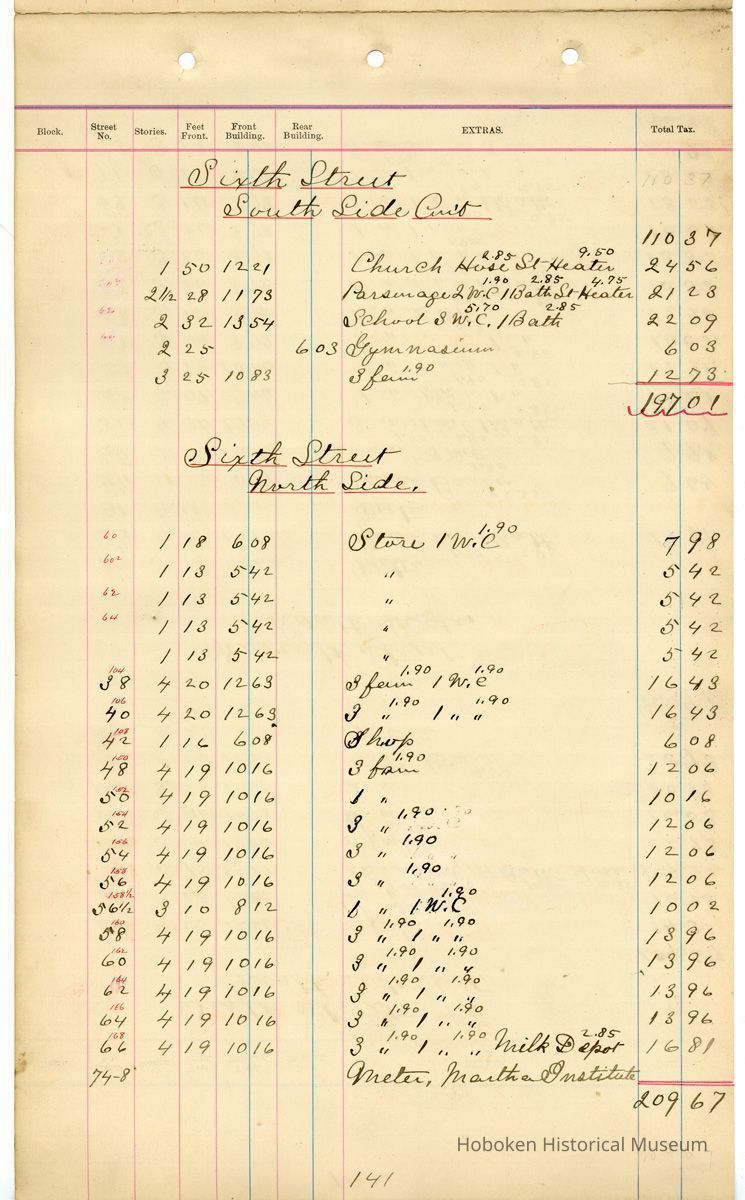 Block. Street No. Stories. Feet Front. Front Building. Rear Building. EXTRAS. Total Tax.
Sixth Street
South Side Con't
110 37
1 50 12 21 Church Hose 2.85 St Heater 9.50 24 56
2½ 28 11 73 Parsonage 2 W.C 1.90 1 Bath 2.85 St Heater 4.75 21 23
2 32 13 54 School 3 W.C. 5.70 1 Bath 2.85 22 09
2 25 6 03 Gymnasium 6 03
3 25 10 83 3 fam 1.90 12 73
197 01
Sixth Street
North Side.
60 1 18 6 08 Store 1 W.C 1.90 7 98
602 1 13 5 42 " 5 42
62 1 13 5 42 " 5 42
64 1 13 5 42 " 5 42
1 13 5 42 " 5 42
104 38 4 20 12 63 3 fam 1.90 1 W.C 1.90 16 43
106 40 4 20 12 63 3 " 1.90 1 " " 1.90 16 43
108 42 1 16 6 08 Shop 6 08
150 48 4 19 10 16 3 fam 1.90 12 06
152 50 4 19 10 16 1 " 10 16
154 52 4 19 10 16 3 " 1.90 12 06
156 54 4 19 10 16 3 " 1.90 12 06
158 56 4 19 10 16 3 " 1.90 12 06
158½ 56½ 3 10 8 12 1 " 1 W.C 1.90 10 02
160 58 4 19 10 16 3 " 1.90 1 " " 1.90 13 96
162 60 4 19 10 16 3 " 1.90 1 " " 1.90 13 96
164 62 4 19 10 16 3 " 1.90 1 " " 1.90 13 96
166 64 4 19 10 16 3 " 1.90 1 " " 1.90 13 96
168 66 4 19 10 16 3 " 1.90 1 " " 1.90 Milk Depot 2.85 16 81
74-8 Meter, Martha Institute
209 67
Hoboken Historical Museum
141